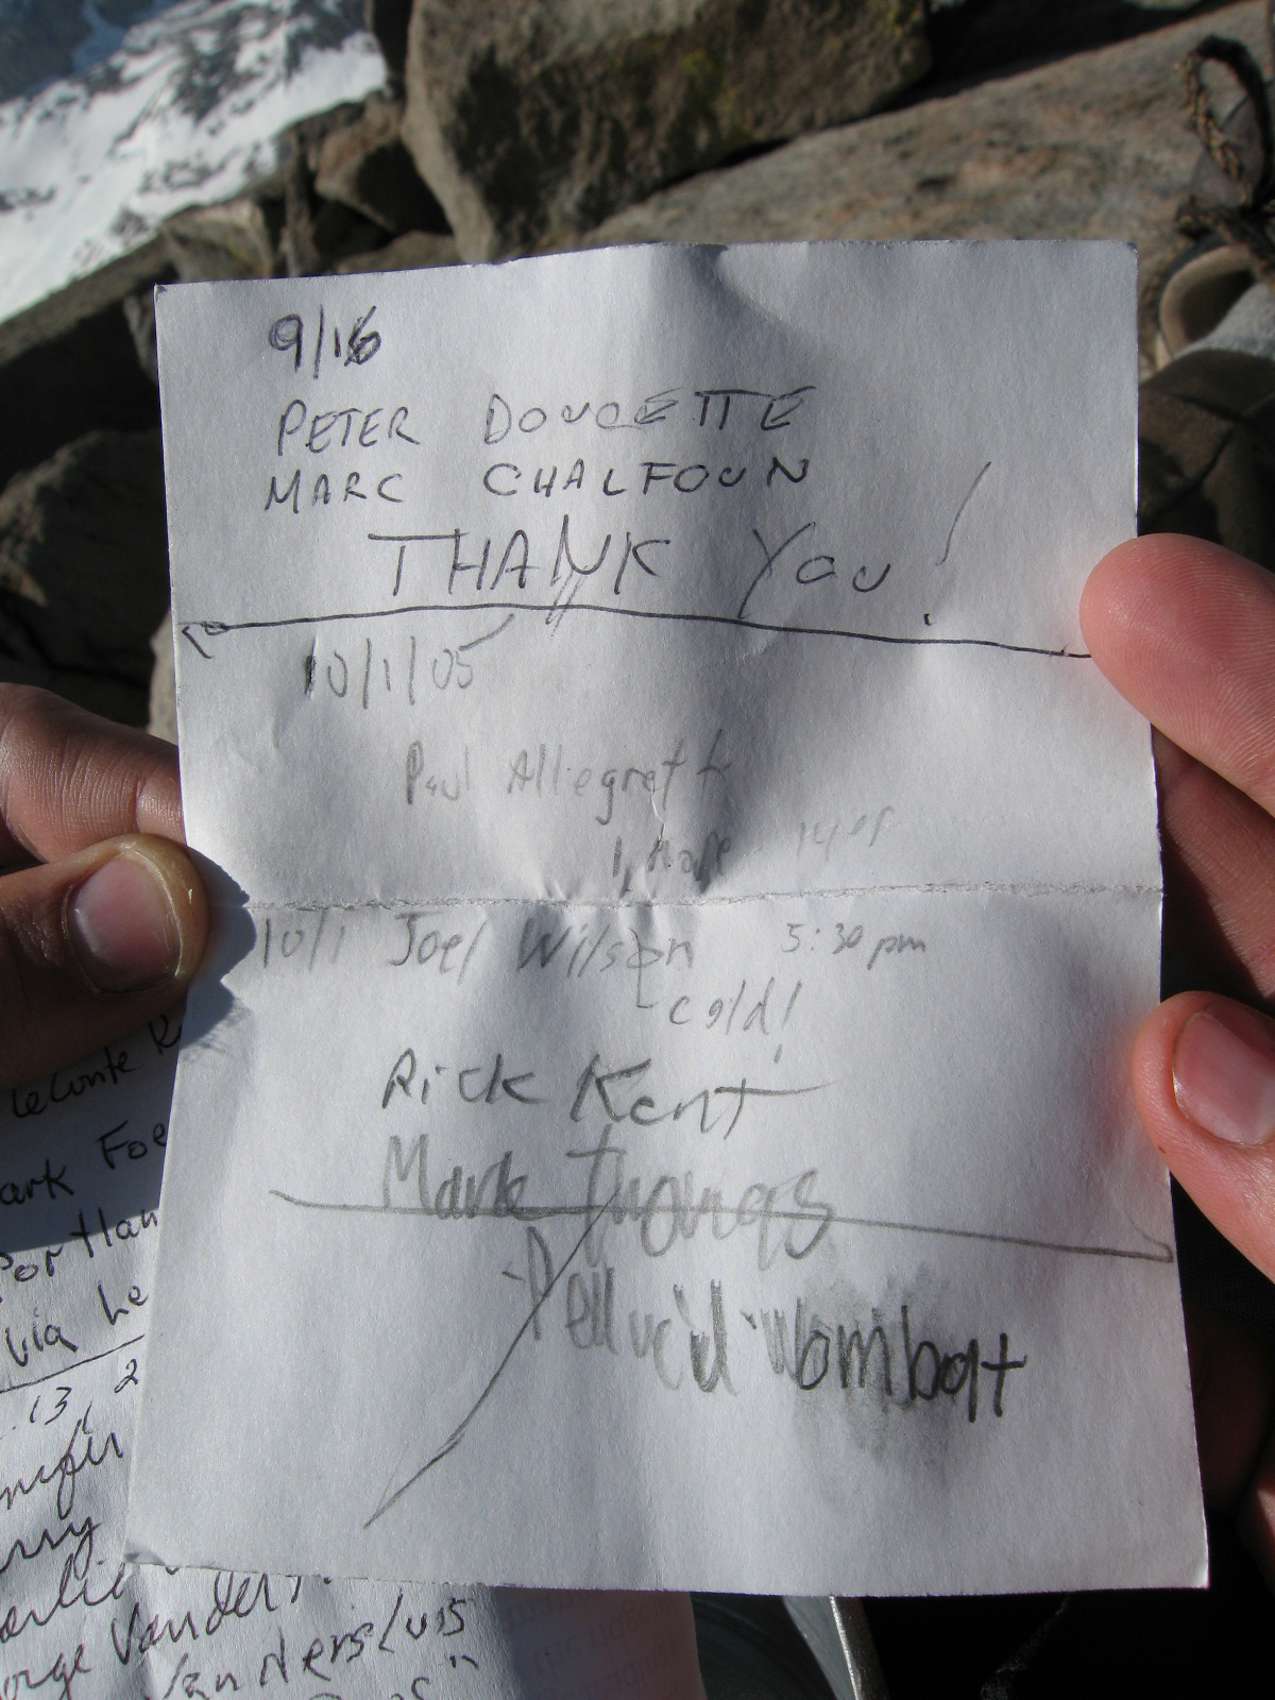 9/16
PETER DOUCETTE
MARC CHALFOUN
THANK YOU!
10/1/05
Paul Allegrett
10/1 Joel Wilson 5:30 pm
cold!
Rick Kent
Mark Thomas
-Pellucid Wombat
LeConte
ark Foe
Portlan
via Le
13, 2
nnifer
orge Vander
Van Dersluis